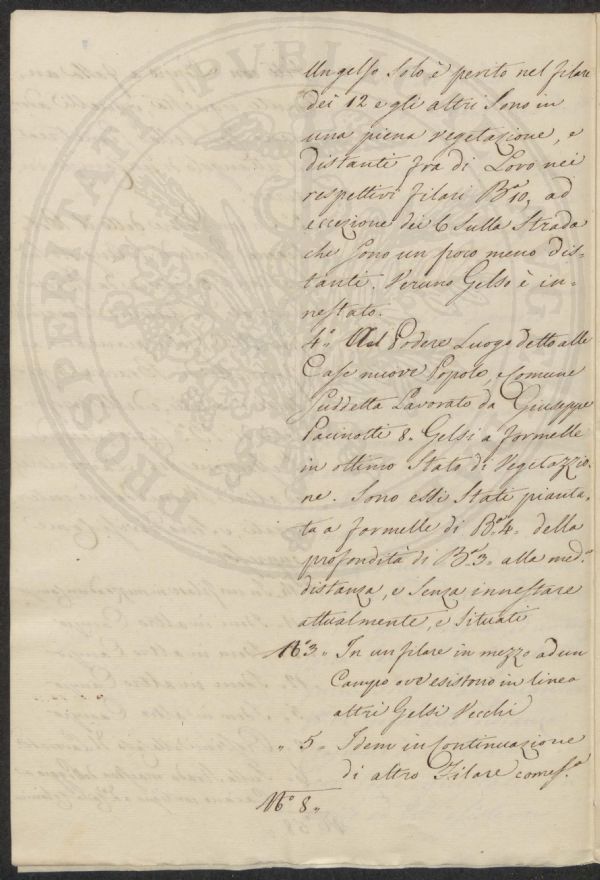 Un gelso solo è perito nel filare
dei 12 e gli altri sono in
una piena vegetazione, e
distanti fra di Loro nei
respettivi filari B.a 10, ad
eccezione dei 6 sulla Strada
che sono un poco meno dis=
tanti. Veruno Gelso è in=
nestato.
4.o Al Podere Luogo detto alle
Case nuove Popolo, e Comune
Suddetta Lavorato da Giuseppe
Pacinotti 8. Gelsi a formelle
in ottimo Stato di Vegetazzio=
ne. Sono essi Stati pianta=
ta a formelle di B.a 4. della
profondità di B.a 3. alla med.a
distanza, e Senza innestare
attualmente, e Situati
N.o 3 „ In un filare in mezzo ad un
Campo ove esistono in linea
altri Gelsi Vecchi
„ 5 „ Idem in Continuazione
di altro Filare come s.a
N.o 8 „
PROSPERITATI PUBLICAE